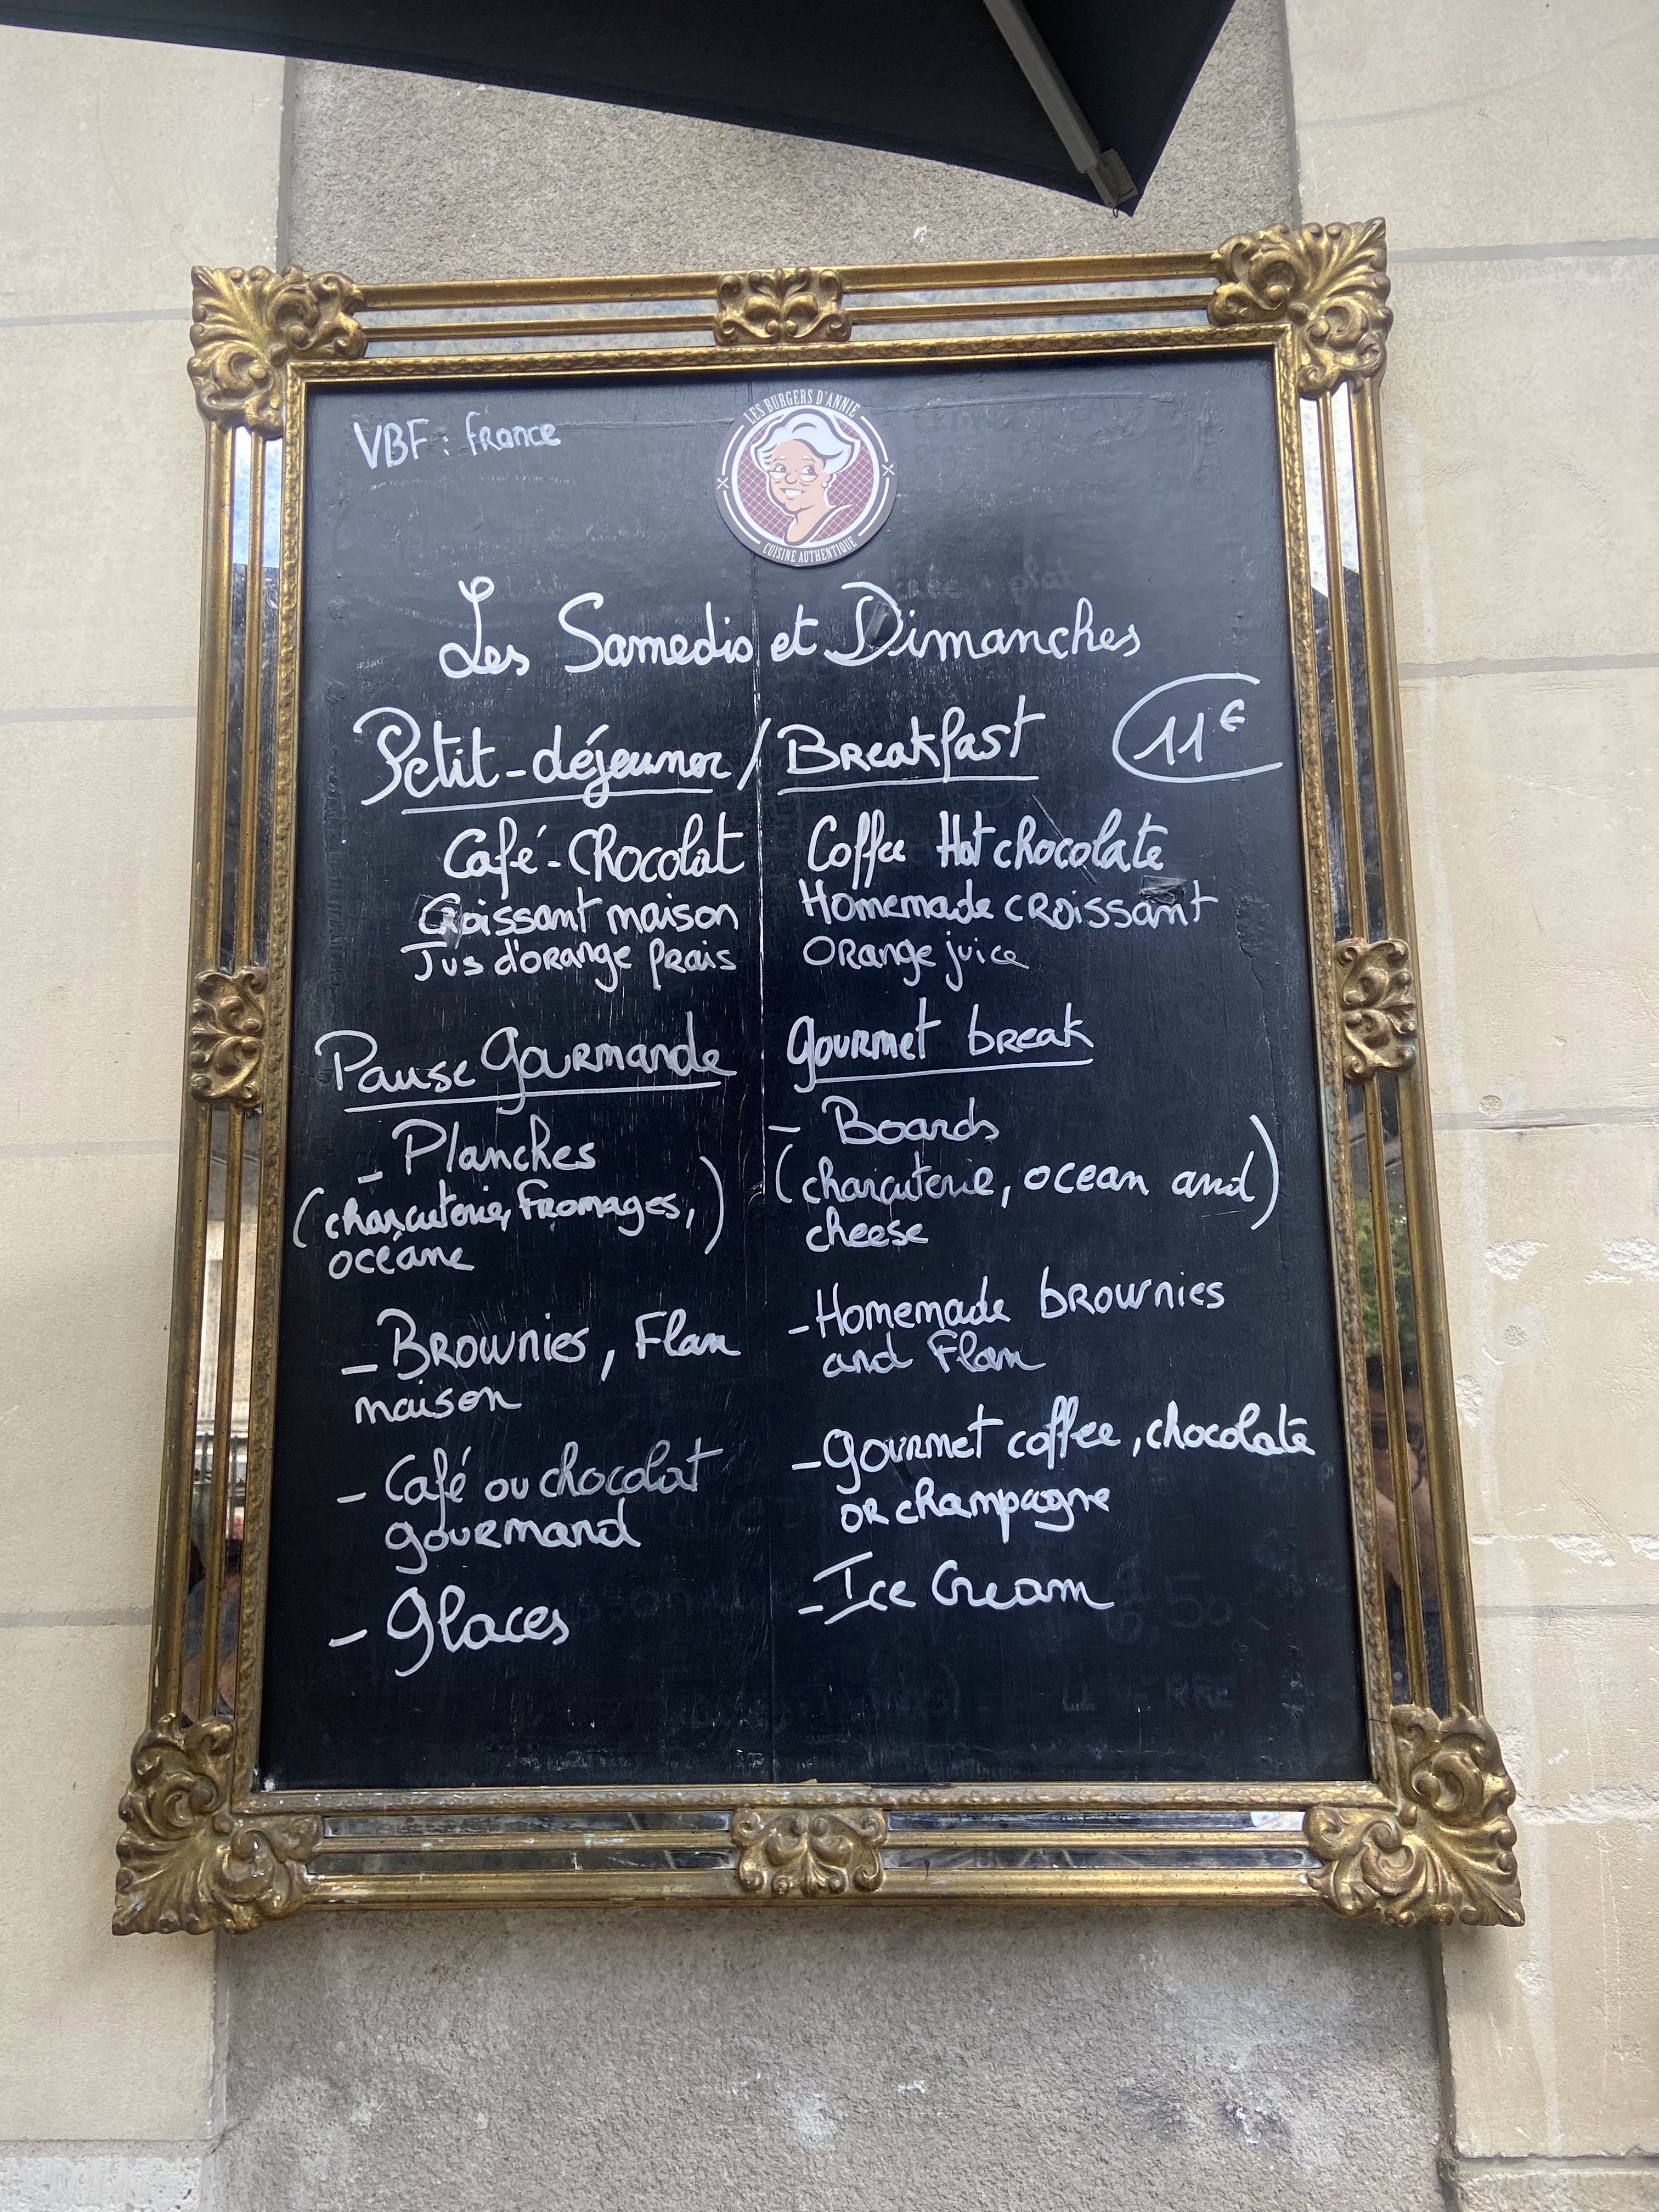 VBF : France
LES BURGERS D'ANNIE
CUISINE AUTHENTIQUE
Les Samedis et Dimanches
Petit-déjeuner / Breakfast 11€
Café-Chocolat
Croissant maison
Jus d'orange frais
Coffee Hot chocolate
Homemade croissant
Orange juice
Pause Gourmande
- Planches
(charcuterie, fromages,)
océane
- Brownies, Flan
maison
- Café ou chocolat
gourmand
- Glaces
Gourmet break
- Boards
(charcuterie, ocean and)
cheese
- Homemade brownies
and Flan
- Gourmet coffee, chocolate
or champagne
- Ice Cream